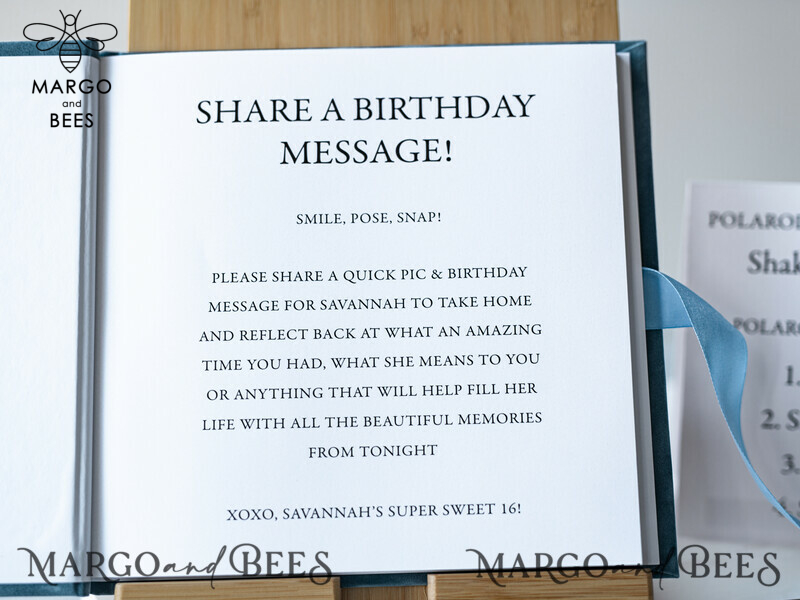 MARGO
and
BEES
SHARE A BIRTHDAY
MESSAGE!
SMILE, POSE, SNAP!
PLEASE SHARE A QUICK PIC & BIRTHDAY
MESSAGE FOR SAVANNAH TO TAKE HOME
AND REFLECT BACK AT WHAT AN AMAZING
TIME YOU HAD, WHAT SHE MEANS TO YOU
OR ANYTHING THAT WILL HELP FILL HER
LIFE WITH ALL THE BEAUTIFUL MEMORIES
FROM TONIGHT
XOXO, SAVANNAH'S SUPER SWEET 16!
1.
2. S
3.
MARGO and BEES
MARGO and BEES